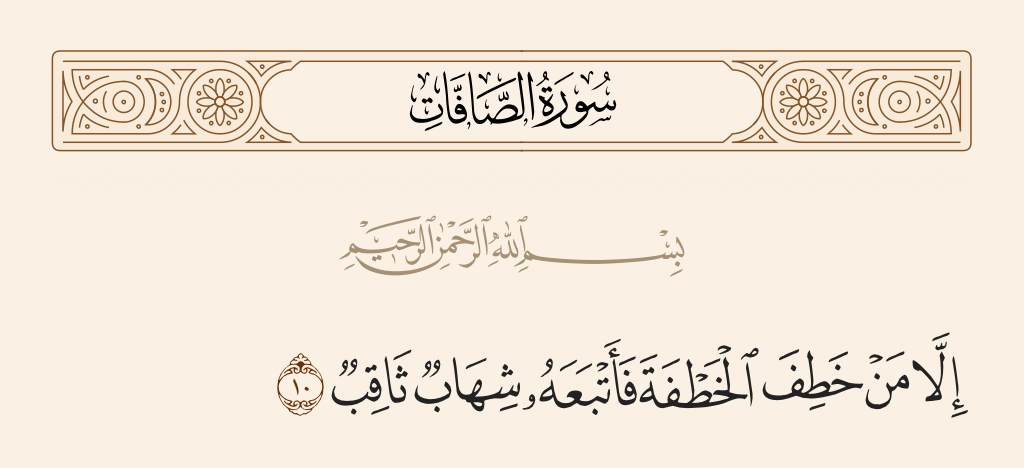 سُورَةُ الصَّافَّاتِ
بِسْمِ ٱللَّهِ ٱلرَّحْمَٰنِ ٱلرَّحِيمِ
إِلَّا مَنْ خَطِفَ ٱلْخَطْفَةَ فَأَتْبَعَهُۥ شِهَابٌ ثَاقِبٌ ١٠